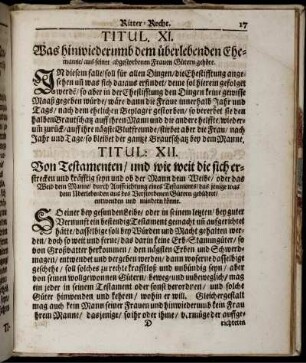 Ritter-Recht. 17
TITUL. XI.
Was hinwiederumb dem überlebenden Ehe-
manne/ aus seiner abgestorbenen Frauen Gütern gehöre.
IN diesem falle/ soll für allen Dingen/ die Ehestifftung ange-
sehen uñ was sich daraus erfindet/ deme sol hierein gefolget
werdē/ so aber in der Ehestifftung den Dingen keine gewisse
Maaß gegeben würde/ wäre dann die Fraue innerhalb Jahr und
Tags/ nach dem ehelichen Beylager gestorben/ so vererbet sie den
halben Brautschatz auff ihren Mann und die andere helffte/ wieder-
um zurück/ auff ihre nägste Blutfreunde/ stirbet aber die Frau/ nach
Jahr und Tage/ so bleibet der gantze Brautschatz bey dem Manne,
TITUL: XII.
Von Testamenten/ und wie weit die sich er-
strecken und kräfftig seyn und ob der Mann dem Weibe/ oder das
Weib dem Manne/ durch Auffrichtung eines Testaments/ das jenige was
dem Uberlebenden aus des Verstorbenen Gütern gebühret/
entwenden und mindern könne.
SO einer bey gesunden Leibe/ oder in seinem letzten/ bey guter
Vernunfft ein beständig Testament gemacht uñ auffgerichtet
hätte/ dasselbige sol bey Würden und Macht gehalten wer-
den/ doch so weit und fern/ das darin keine Erb-Stammgüter/ so
von Großvater herkommen/ den nägsten Erben und Schwerdt-
magen/ entwendet und vergeben werden/ dann wo seine dasselbige
geschehe/ soll solches zu recht krafftlos und unbündig seyn/ aber
von seinen wollgewonnen Gütern/ beweg- und unbeweglich/ mag
ein jeder in seinem Testament oder sonst verordnen/ und solche
Güter hinwenden und kehren/ wohin er will. Gleichergestalt
mag auch kein Mann seiner Frauen und hinwiederumb kein Frau
ihrem Manne/ dasjenige/ so ihr oder ihme/ vermüge der auffge-
D richteten